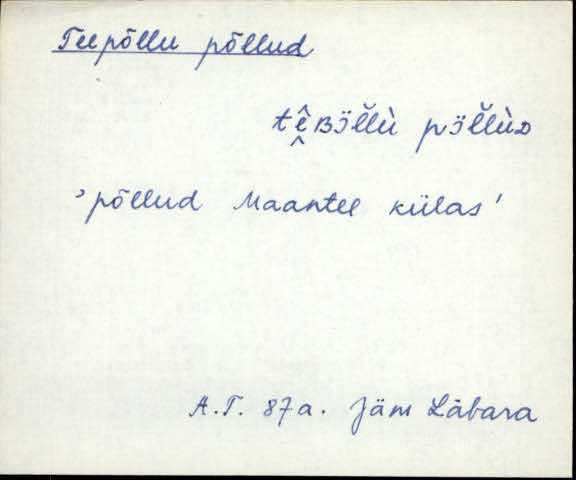 Teepõllu põllud
tê̬ʙö̆l̆lù pö̆l̆lùᴅ
'põllud Maantee külas'
A.T. 87a. Jäm Läbara